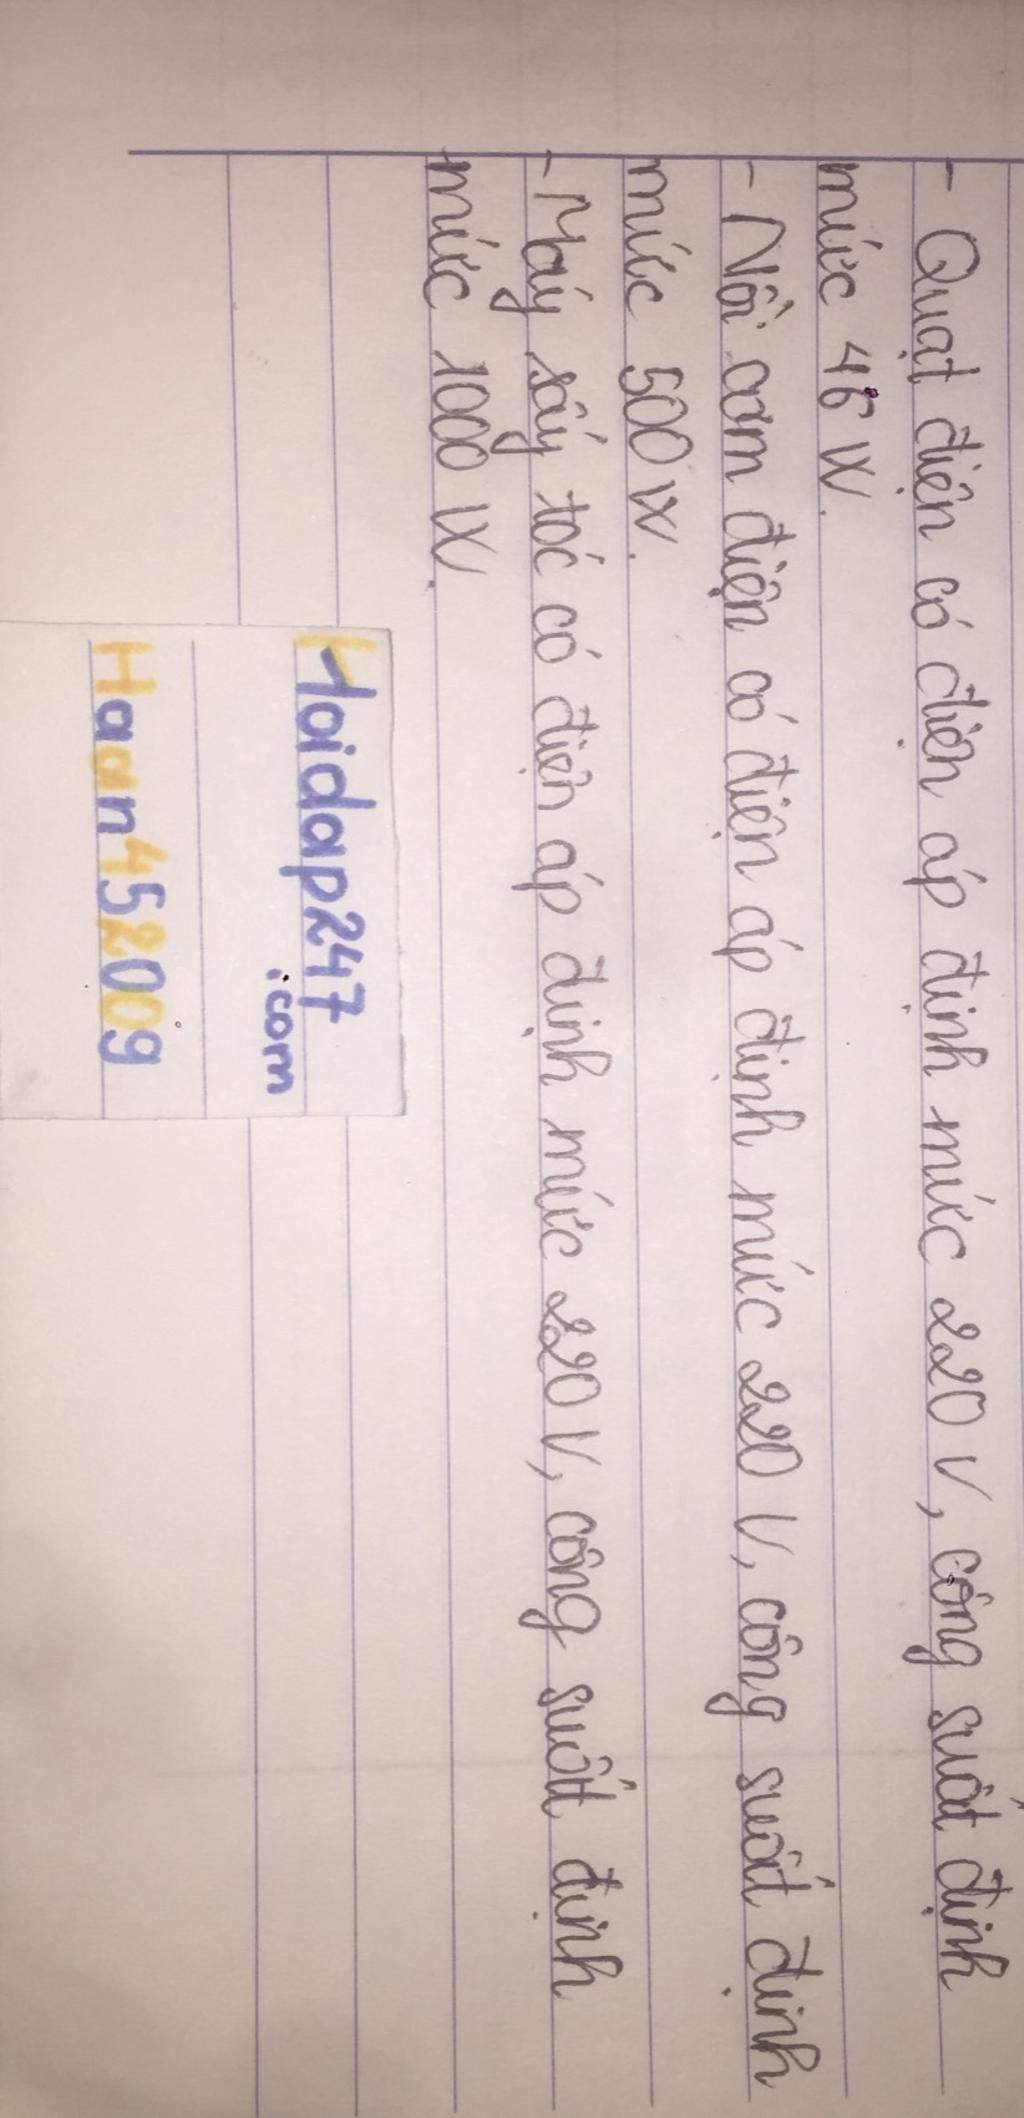 - Quạt điện có điện áp định mức 220 V, công suất định
mức 46 W.
- Nồi cơm điện có điện áp định mức 220 V, công suất định
mức 500 W.
- Máy sấy tóc có điện áp định mức 220 V, công suất định
mức 1000 W.
Hoidap247
.com
Haan452009